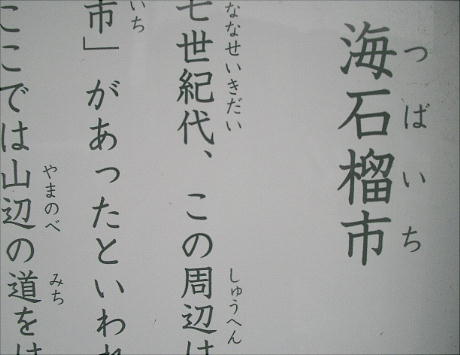 つばいち
海石榴市
ななせいきだい しゅうへん
七世紀代、この周辺は
いち
市」があったといわれ
やまのべ みち
ここでは山辺の道をは